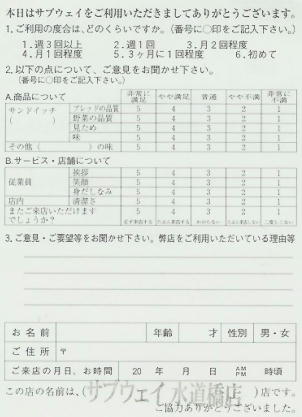 本日はサブウェイをご利用いただきましてありがとうございます。
1.ご利用の度合は、どのくらいですか。(番号に○印をご記入下さい。)
1.週3回以上 2.週1回 3.月2回程度
4.月1回程度 5.3ヶ月に1回程度 6.初めて
2.以下の点について、ご意見をお聞かせ下さい。
(番号に○印をご記入下さい。)
A.商品について 非常に満足 やや満足 普通 やや不満 非常に不満
サンドイッチ ( ) ブレッドの品質 5 4 3 2 1
野菜の品質 5 4 3 2 1
見ため 5 4 3 2 1
味 5 4 3 2 1
その他( )の味 5 4 3 2 1
B.サービス・店舗について
従業員 挨拶 5 4 3 2 1
笑顔 5 4 3 2 1
身だしなみ 5 4 3 2 1
店内 清潔さ 5 4 3 2 1
またご来店いただけますでしょうか? 5 4 3 2 1
3.ご意見・ご要望等をお聞かせ下さい。弊店をご利用いただいている理由等
お名前 年齢 才 性別 男・女
ご住所 〒
ご来店の月日、お時間 20 年 月 日 AM PM 時頃
この店の名前は、(サブウェイ水道橋店)店です。
ご協力ありがとうございました。